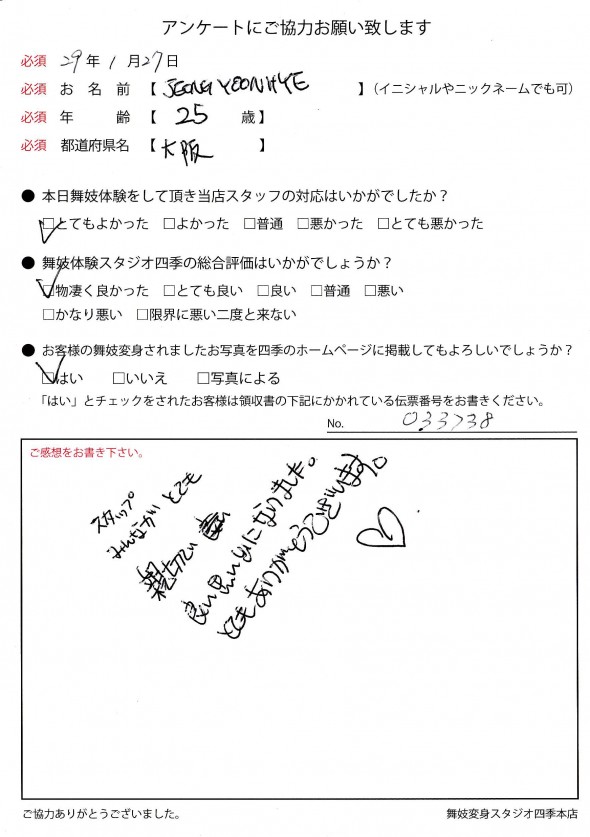 アンケートにご協力お願い致します
必須 29年 1月27日
必須 お名前【 JEONG YEONHYE 】(イニシャルやニックネームでも可)
必須 年齢【 25 歳】
必須 都道府県名【 大阪 】
● 本日舞妓体験をして頂き当店スタッフの対応はいかがでしたか？
□とてもよかった □よかった □普通 □悪かった □とても悪かった
● 舞妓体験スタジオ四季の総合評価はいかがでしょうか？
□物凄く良かった □とても良い □良い □普通 □悪い
□かなり悪い □限界に悪い二度と来ない
● お客様の舞妓変身されましたお写真を四季のホームページに掲載してもよろしいでしょうか？
□はい □いいえ □写真による
「はい」とチェックをされたお客様は領収書の下記にかかれている伝票番号をお書きください。
No. 033738
ご感想をお書き下さい。
スタップ
みんながいとても
親切で
良い思い出になりました。
とてもありがとうございます。
ご協力ありがとうございました。
舞妓変身スタジオ四季本店